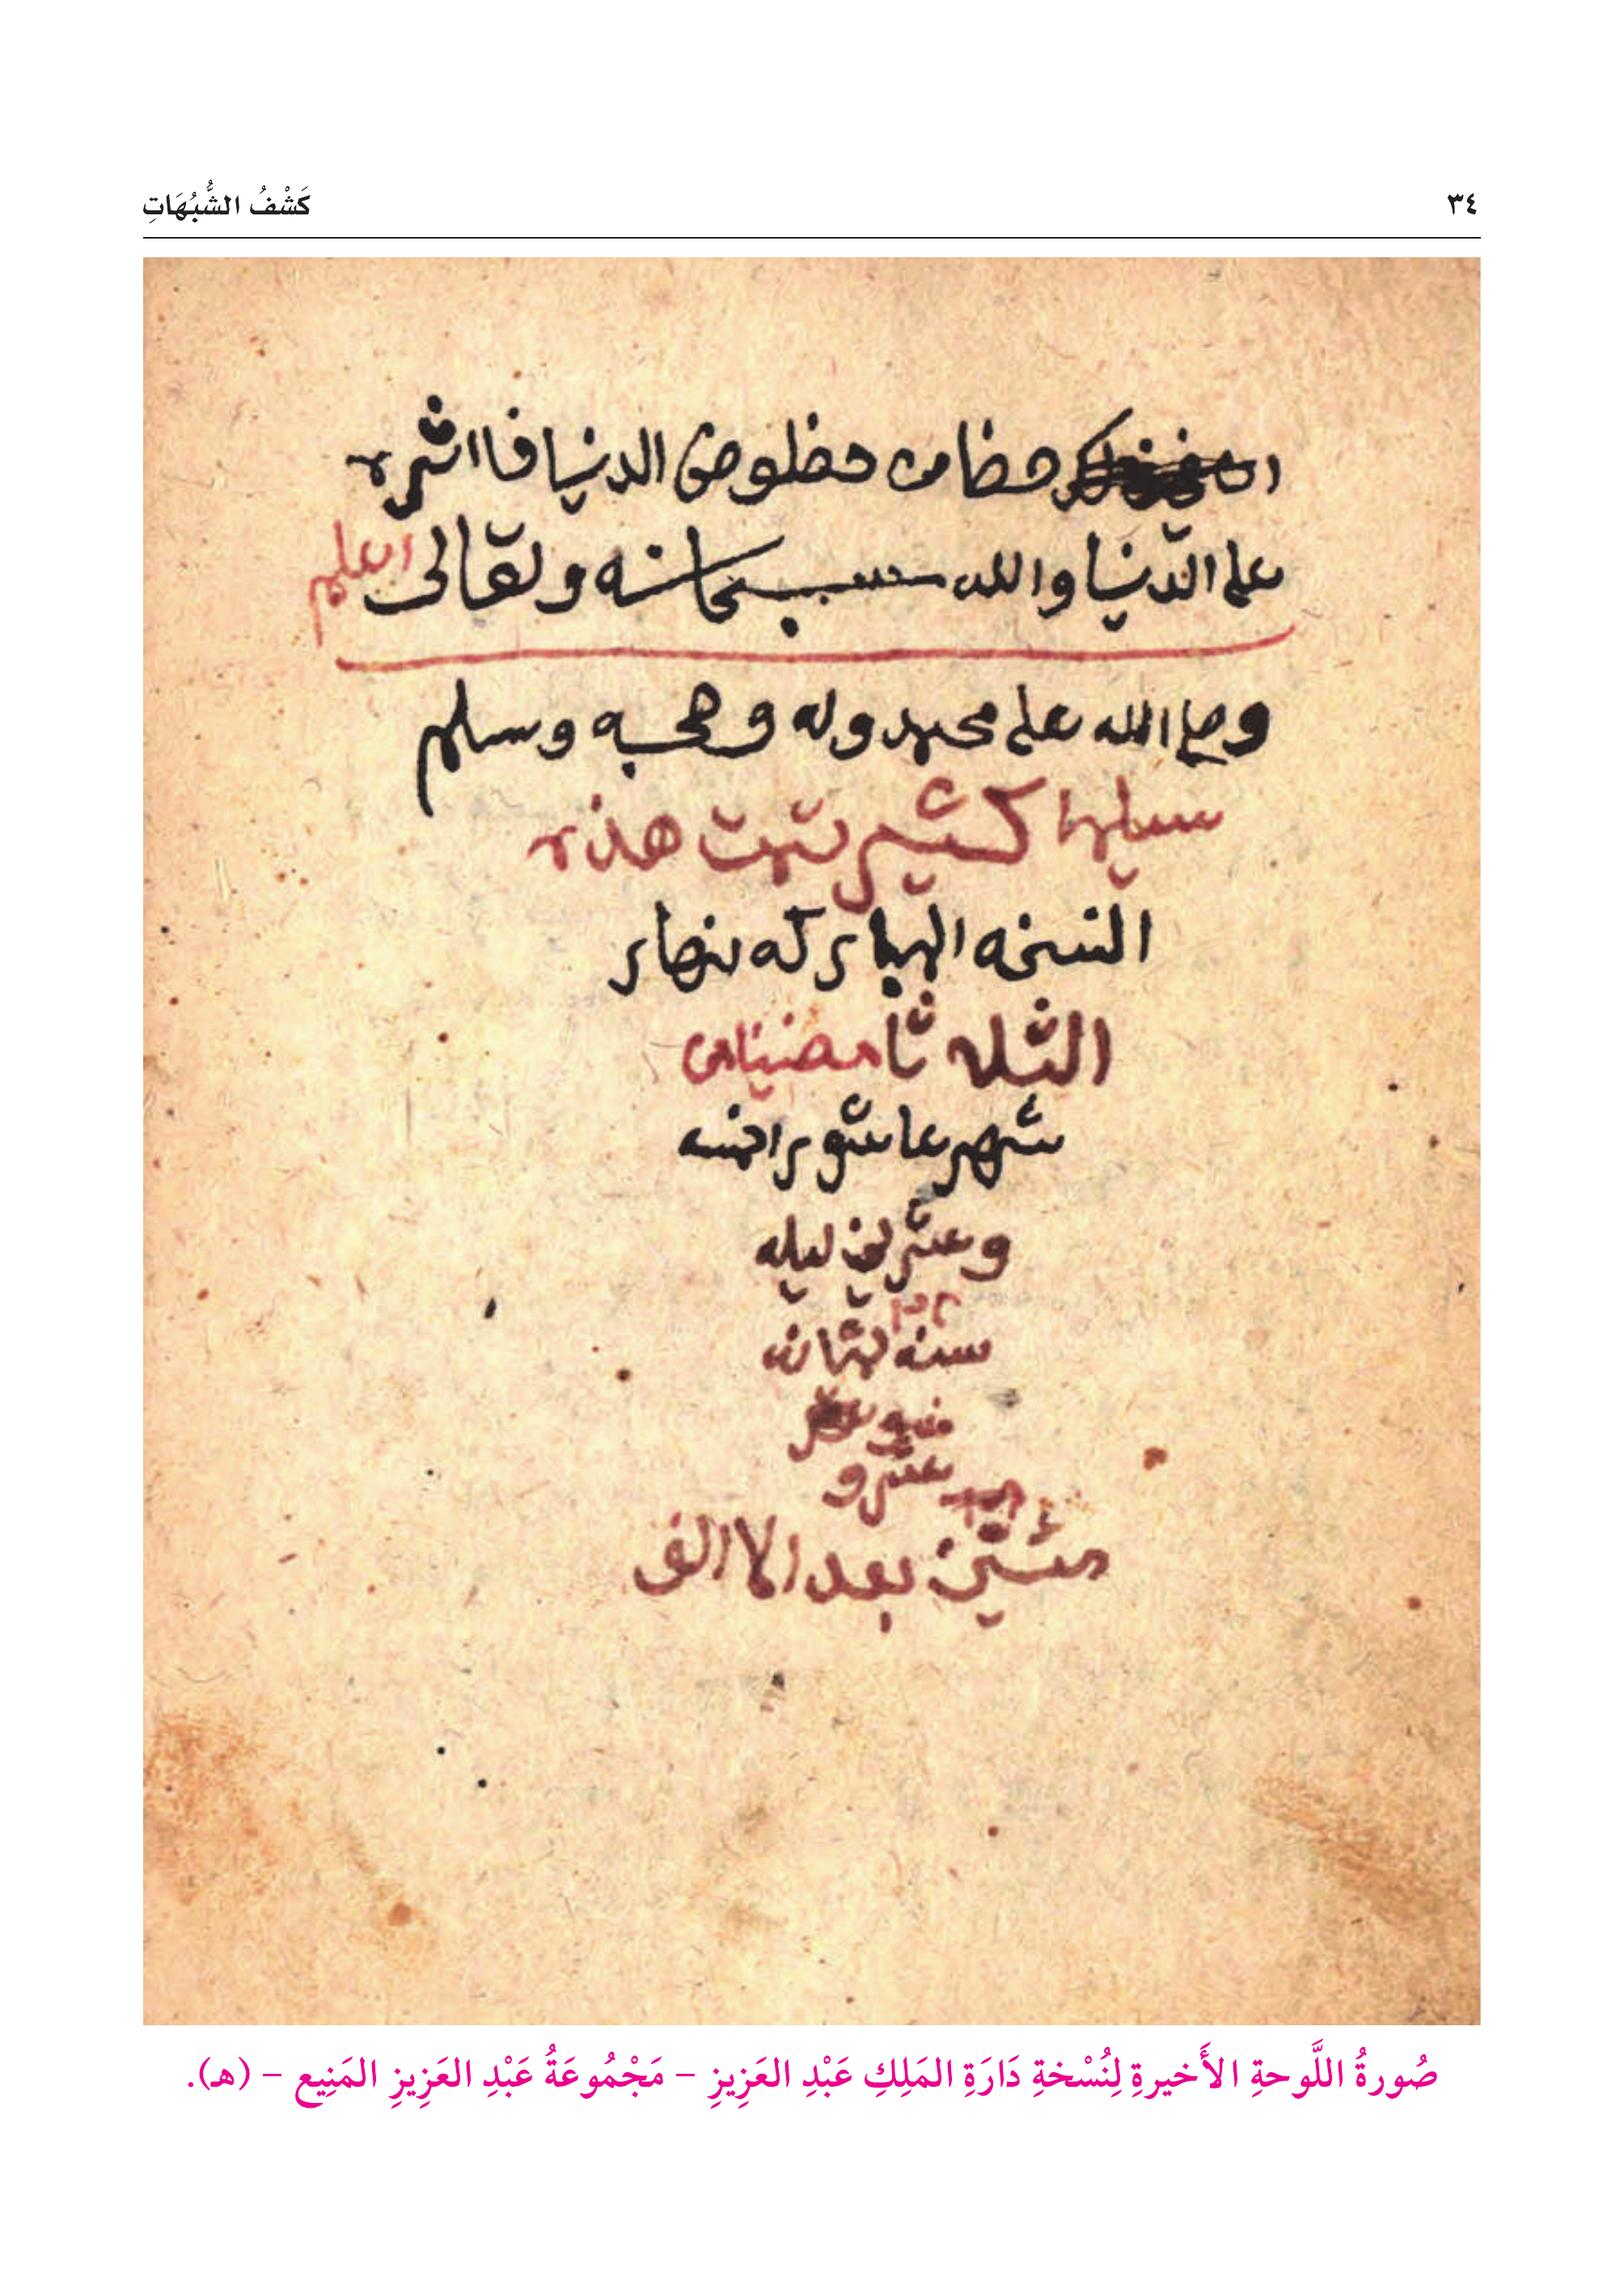 ٣٤
كَشْفُ الشُّبُهَاتِ
حضا من حظلوض الدنيا فااثره
على الدنيا والله سبحانه وتعالى اعلم
وصلى الله على محمد وله وصحبه وسلم
سليما كثير تمت هذه
النسخه المباركه نهار
الثلا ثا مضيا من
شهر عاشورا خمسه
وعشرين ليله
سنه ثمان
عشر و
مئتين بعد الاالف
صُورةُ اللَّوحةِ الأَخيرةِ لِنُسْخةِ دَارَةِ المَلِكِ عَبْدِ العَزِيزِ – مَجْمُوعَةُ عَبْدِ العَزِيزِ المَنِيع – (هـ).